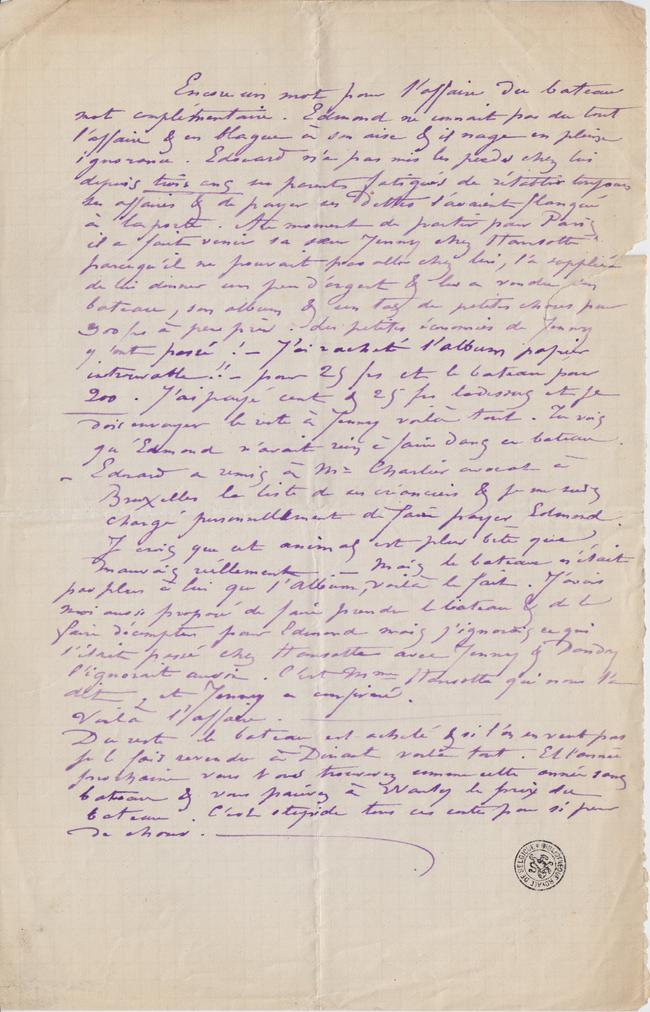 Encore un mot pour l'affaire du bateau
mot complémentaire. Edmond ne connait pas du tout
l'affaire & en blague à son aise & il nage en pleine
ignorance. Edouard n'a pas mis les pieds chez lui
depuis trois ans ses parents fatigués de rétablir toujours
ses affaires & de payer ses dettes l'avaient flanqué
à la porte. Au moment de partir pour Paris
il a fait venir sa sœur Jenny chez Hansotte
parcequ'il ne pouvait pas aller chez lui, l'a suppliée
de lui donner un peu d'argent & lui a vendu son
bateau, son album & un tas de petites choses pour
300 frs à peu près. Les petites économies de Jenny
y ont passé! — J'ai racheté l'album papier
introuvable!! — pour 25 frs et le bateau pour
200. J'ai payé cent & 25 frs ladessus et je
dois envoyer le reste à Jenny voilà tout. Tu vois
qu'Edmond n'avait rien à faire dans ce bateau.
– Edouard a remis à Me Charlier avocat à
Bruxelles la liste de ses créanciers & je me suis
chargé personnellement de faire payer Edmond.
Je crois que cet animal est plus bête que
mauvais réellement — Mais le bateau n'était
pas plus à lui que l'album, voilà le fait. J'avais
moi aussi proposé de faire prendre le bateau & de le
faire décompter pour Edmond mais j'ignorais ce qui
s'était passé chez Hansotte avec Jenny &
l'ignorait aussi. C'est Mme Hansotte qui nous l'a
dit, et Jenny a confirmé.
Voilà l'affaire.
Du reste le bateau est acheté & si l'on en veut pas
je le fais revendre à Dinant voilà tout. Et l'année
prochaine vous vous trouverez comme cette année sans
bateau & vous paierez à le prix du
bateau. C'est stupide tous ces contes pour si peu
de chose.
BIBLIOTHEQUE ROYALE DE BELGIQUE